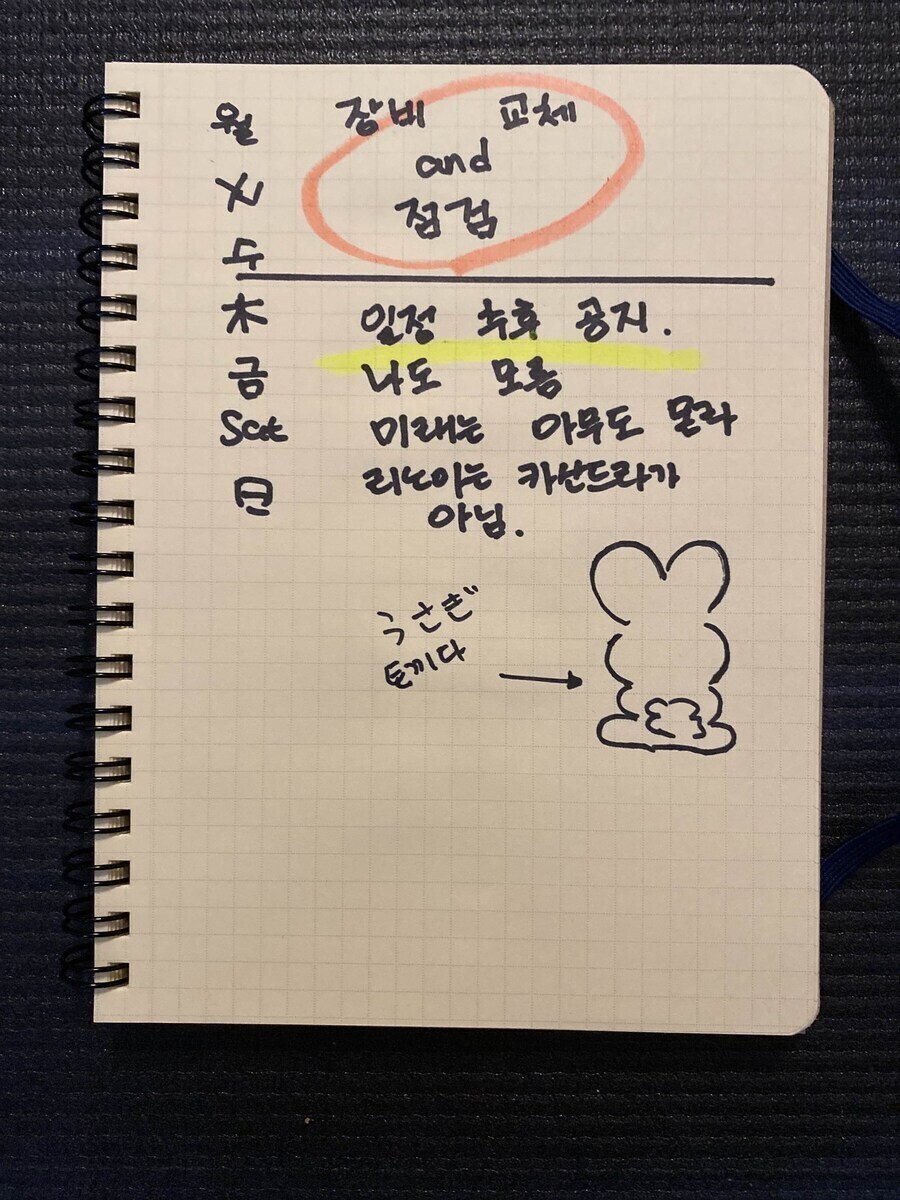 월 장비 교체
and
火 점검
수
木 일정 추후 공지.
금 나도 모름
Sat 미래는 아무도 몰라
日 리노아는 카산드라가
아님.
うさぎ
토끼다